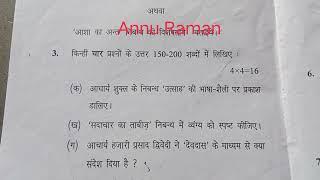 अथवा
'आशा का अन्त' निबन्ध की
Annu Raman
3. किन्हीं चार प्रश्नों के उत्तर 150-200 शब्दों में लिखिए ।
4×4=16
6.
(क) आचार्य शुक्ल के निबन्ध 'उत्साह' की भाषा-शैली पर प्रकाश
डालिए ।
(ख) 'सदाचार का ताबीज़' निबन्ध में व्यंग्य को स्पष्ट कीजिए ।
(ग) आचार्य हजारी प्रसाद द्विवेदी ने 'देवदारु' के माध्यम से क्या
संदेश दिया है ?
7